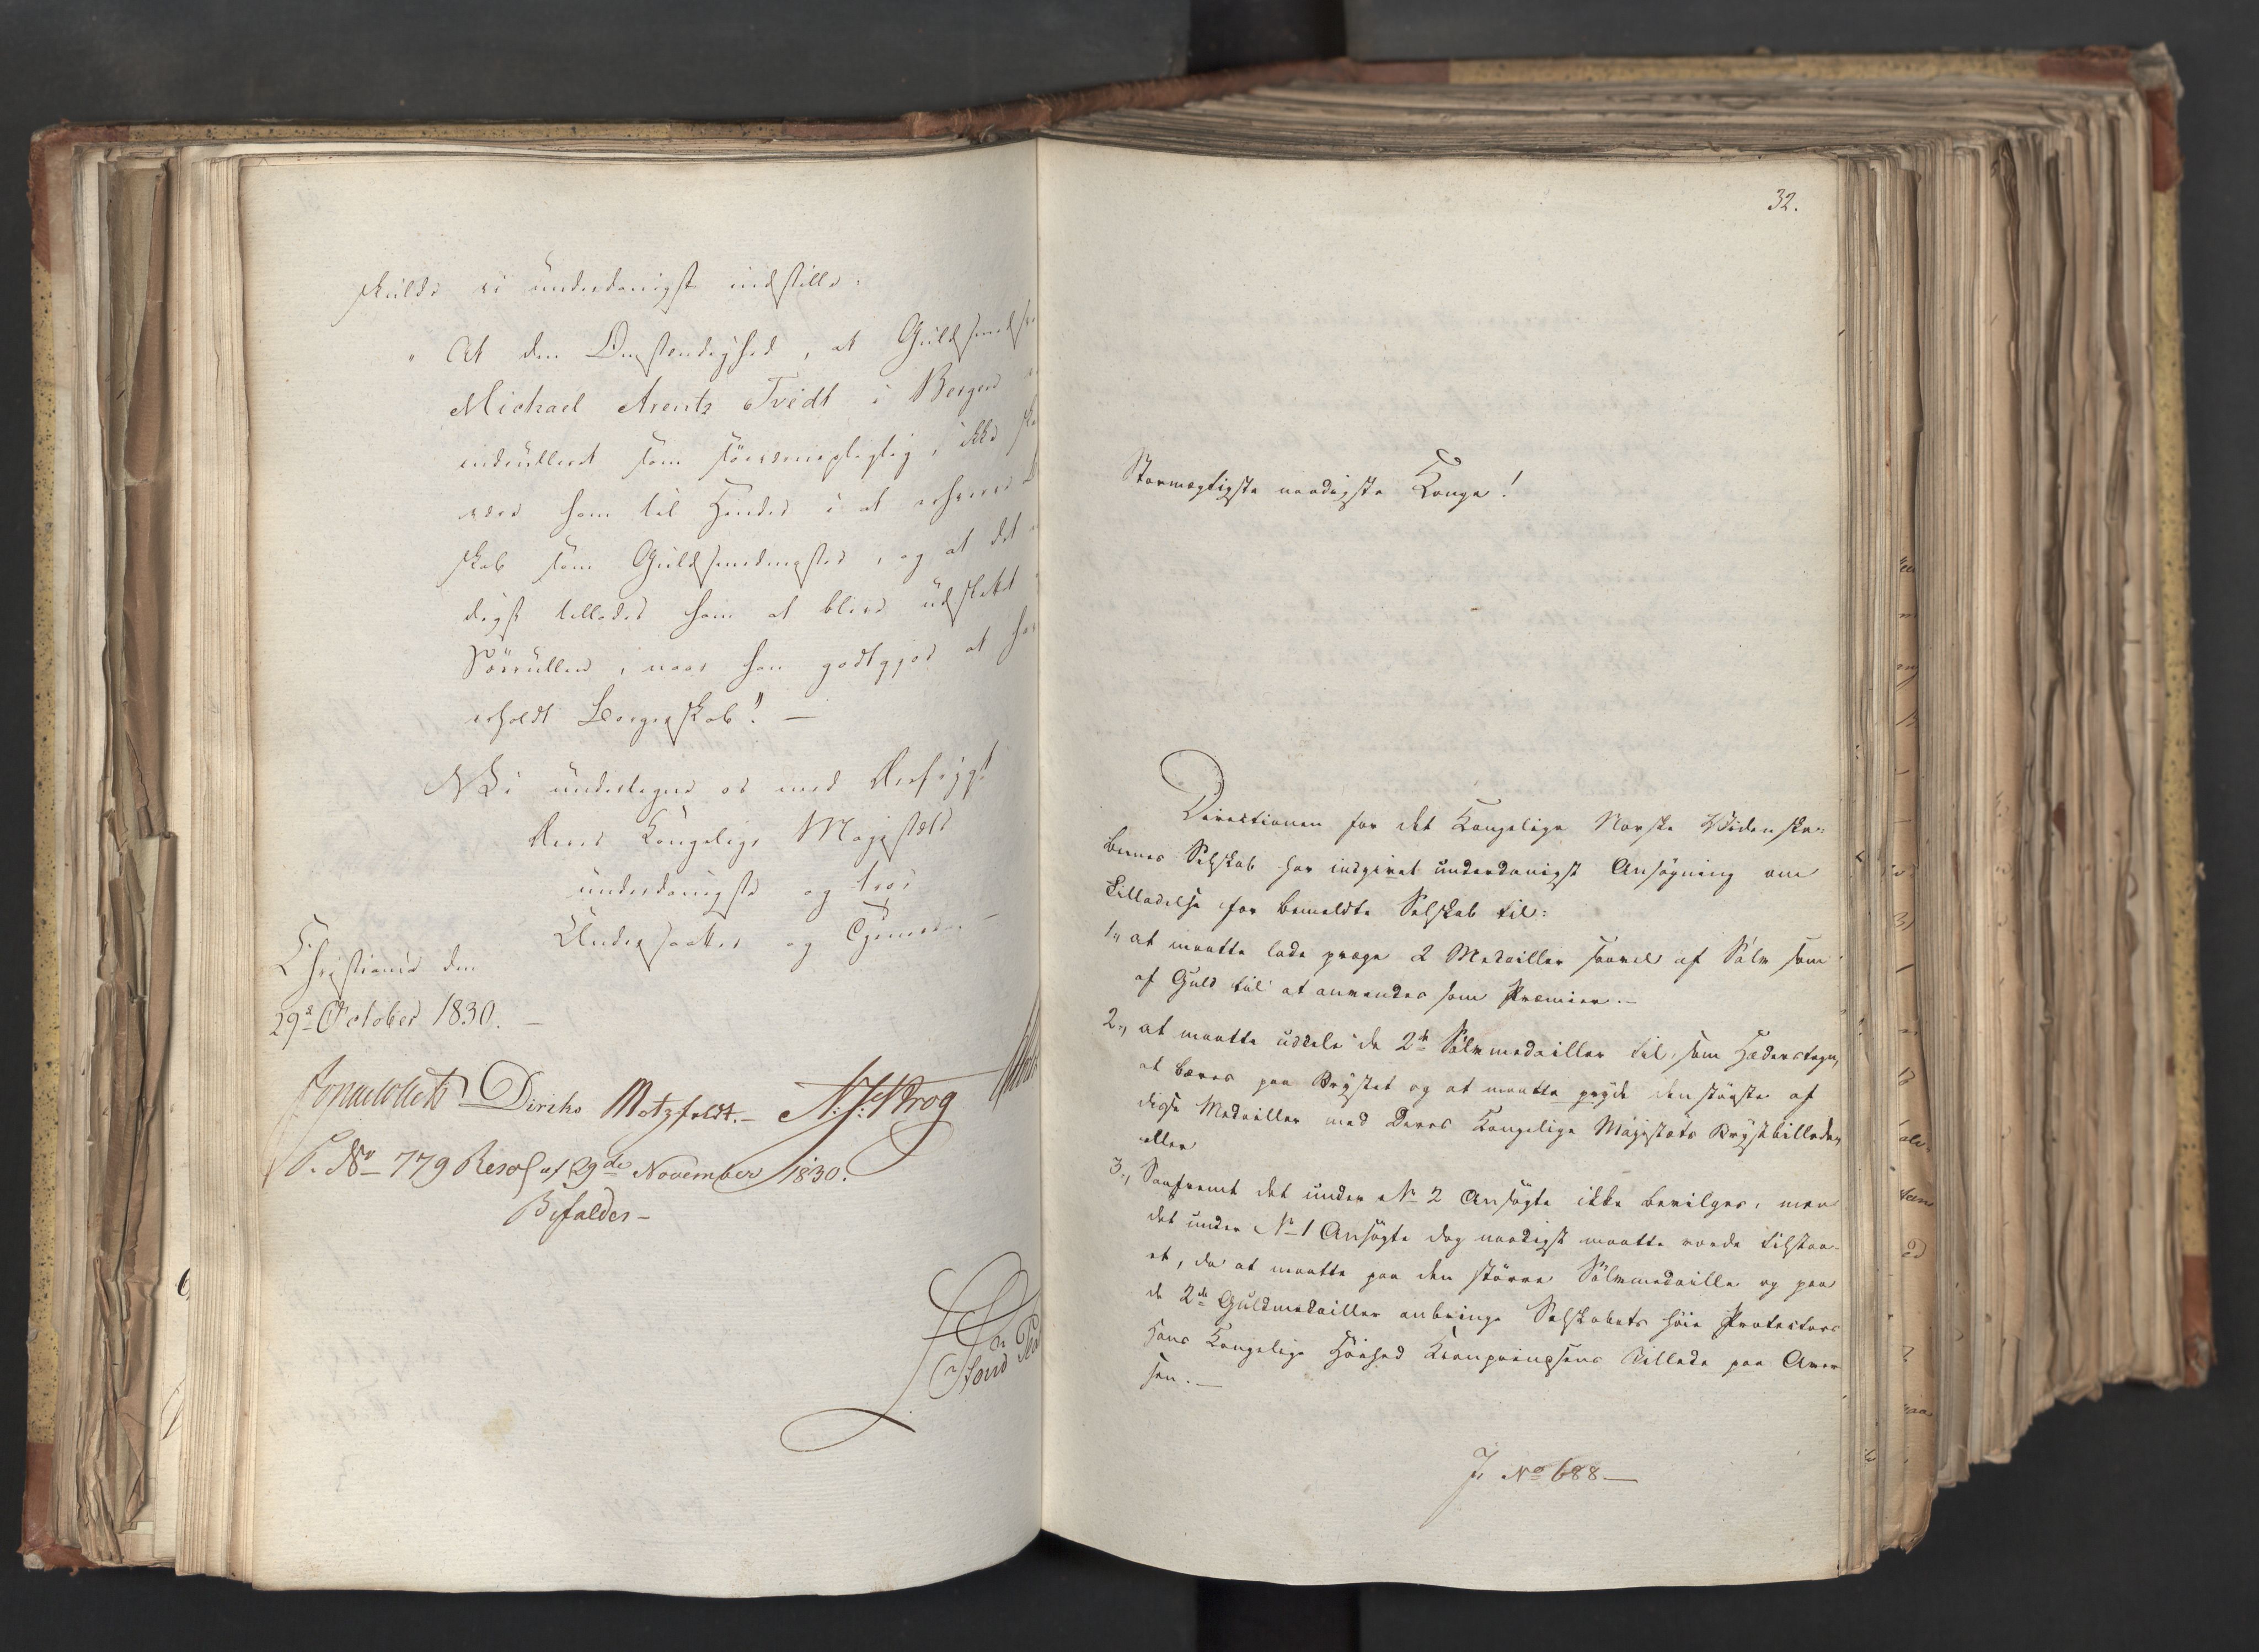 skulde vi underdanigst indstille:
" At den Omstændighed, at Guldsmedsv
Michael Arentz Tvedt i Bergen
indrulleret som Söeværnepligtig, ikke ska
være ham til Hinder i at erhverve B
skab som Guldsmedmester, og at det
digst tillades ham at blive udslettet
Söerullen, naar han godtgjör at ha
erholdt Borgerskab." —
Vi undertegne os med Ærefrygt
Deres Kongelige Majestæts
underdanigste og troe
Undersaatter og Tjenere —
Christiania den
29de October 1830. —
Jonas Collett Diriks Motzfeldt. — A. J. Krog
P. No 779 Resol af 29de November 1830.
Bifaldes —
32.
Stormægtigste naadigste Konge!
Directionen for det Kongelige Norske Videnska-
bernes Selskab har indgivet underdanigst Ansögning om
Tilladelse for bemeldte Selskab til:
1., at maatte lade præge 2 Medailler saavel af Sölv som
af Guld til at anvendes som Præmier. —
2., at maatte uddele de 2de Sölvmedailler til, som Hæderstegn,
at bæres paa Brystet og at maatte pryde den störste af
disse Medailler med Deres Kongelige Majestæts Brystbillede,
eller
3., Saafremt det under No 2 Ansögte ikke bevilges, men
det under No 1 Ansögte dog naadigst maatte vorde tilstaa-
et, da at maatte paa den större Sölvmedaille og paa
de 2de Guldmedailler anbringe Selskabets höie Protectors
Hans Kongelige Höihed Kronprindsens Billede paa Aver-
sen. —
J. No 688 —